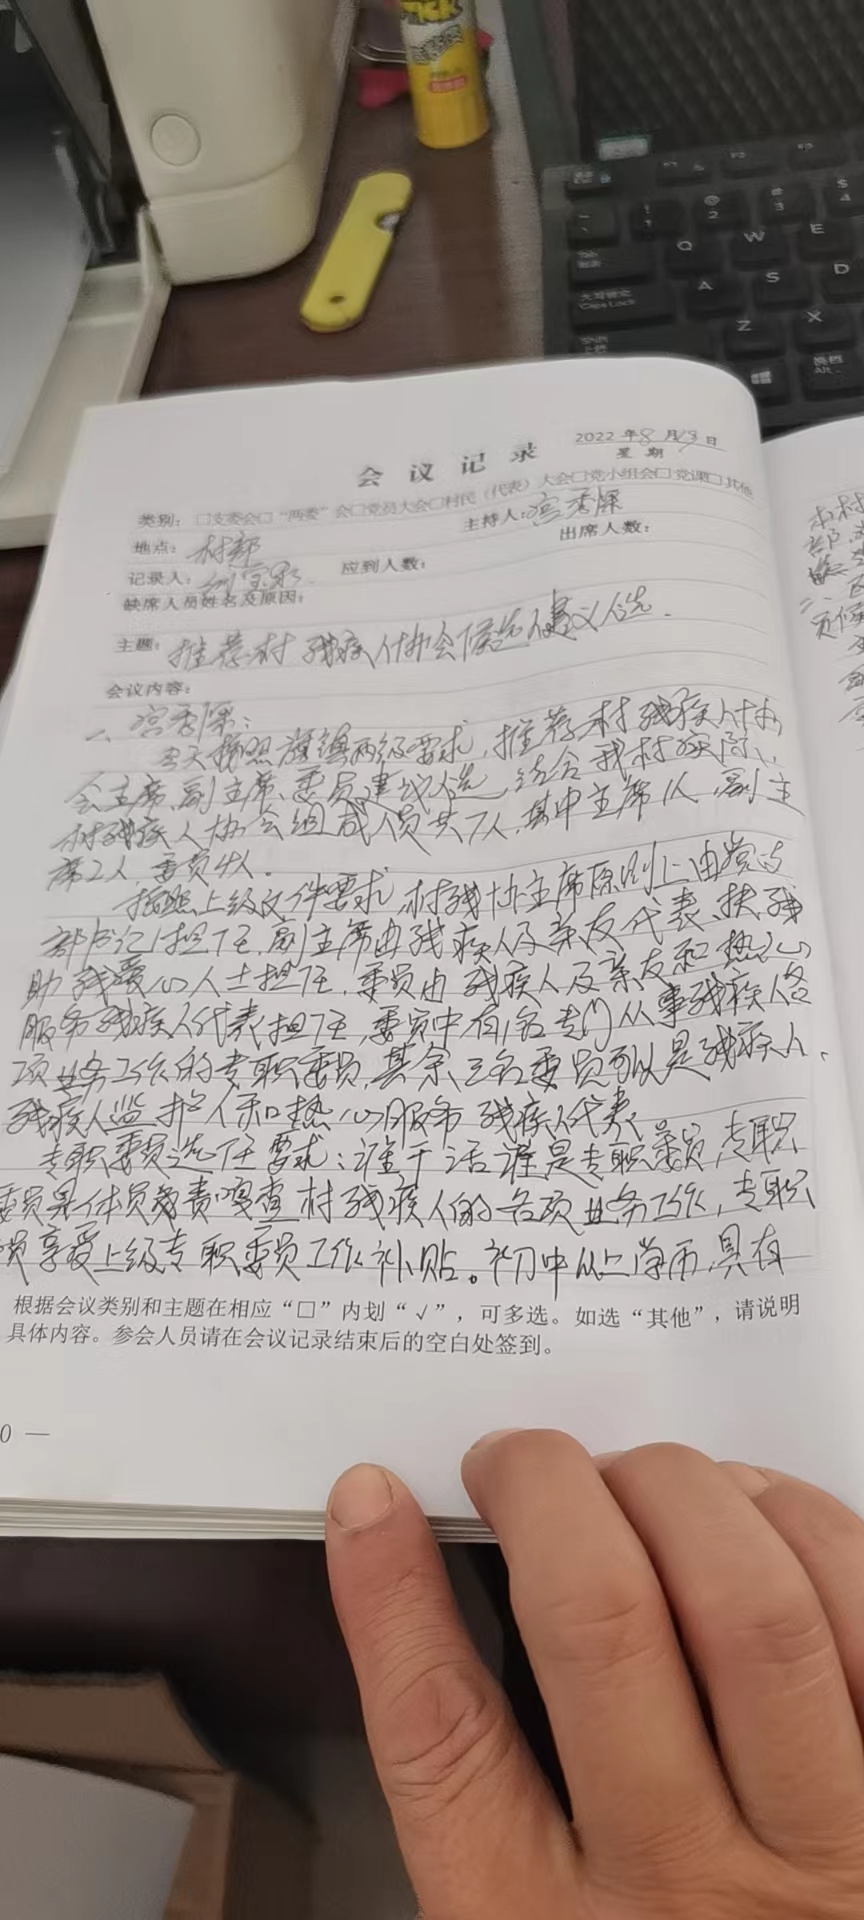 会议记录
2022年8月13日
星期
类别：□支委会□“两委”会□党员大会□村民（代表）大会□党小组会□党课□其他
地点：村部
主持人：宫秀保
记录人：
应到人数：
出席人数：
缺席人员姓名及原因：
主题：推荐村残疾人协会候选人建议人选.
会议内容：
一、宫秀保：
今天按照旗镇两级要求，推荐村残疾人协
会主席、副主席、委员建议人选，结合我村实际、
村残疾人协会组成人员共7人，其中主席1人，副主
席2人，委员4人。
按照上级文件要求，村残协主席原则上由党支
部书记担任，副主席由残疾人及亲友代表、扶残
助残爱心人士担任，委员由残疾人及亲友和热心
服务残疾人代表担任，委员中有1名专门从事残疾人各
项业务工作的专职委员，其余三名委员可以是残疾人、
残疾人监护人和热心服务残疾人代表
专职委员选任要求：谁干活谁是专职委员，专职
委员具体负责嘎查村残疾人的各项业务工作，专职
员享受上级专职委员工作补贴。初中以上学历，具有
根据会议类别和主题在相应“□”内划“√”，可多选。如选“其他”，请说明
具体内容。参会人员请在会议记录结束后的空白处签到。
0 —